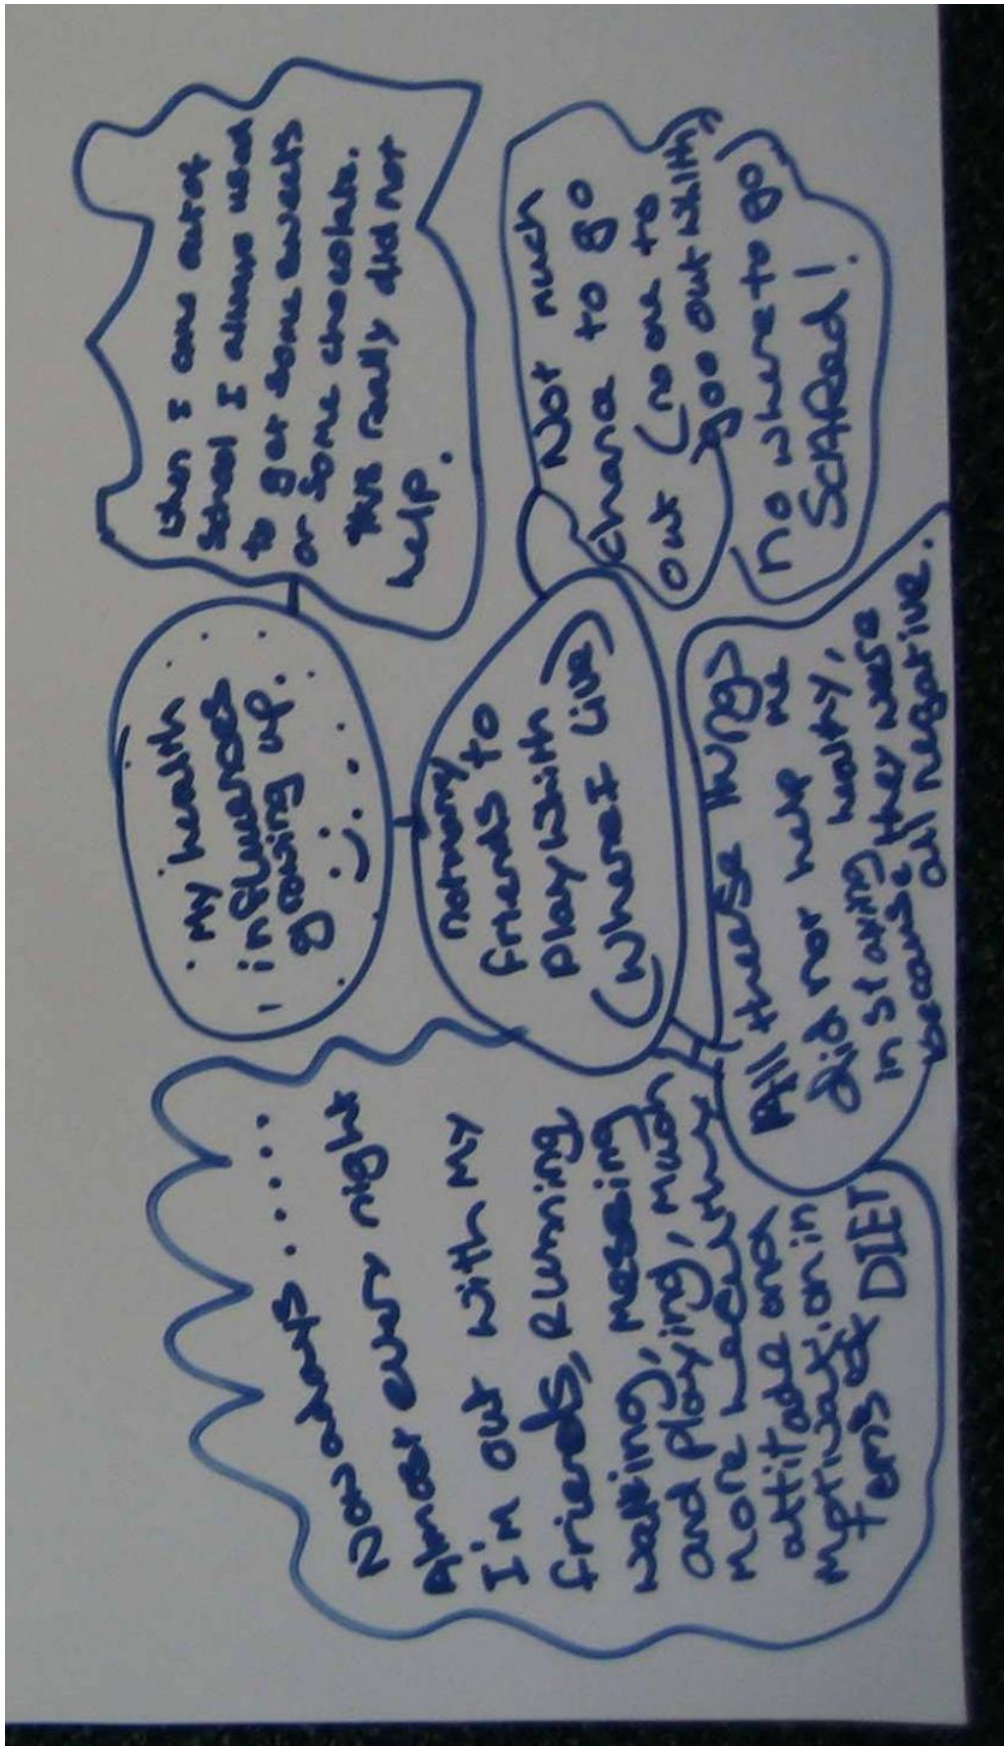 My health
influences
growing up.
when I came out of
School I always used
to get some sweets
or Some chocolate.
this really did not
help.
not many
friends to
play with
(where I live)
Not much
chance to go
out (no one to
goo out whith,
no where to go)
ScARed!
All these things
did not help me
in staying healthy,
because they were
all negative.
Now adays.......
Almost every night
I'm out with my
friends, Running
walking, messing
and playing, much
more healthy
attitade and
motivation in
terms of DIET